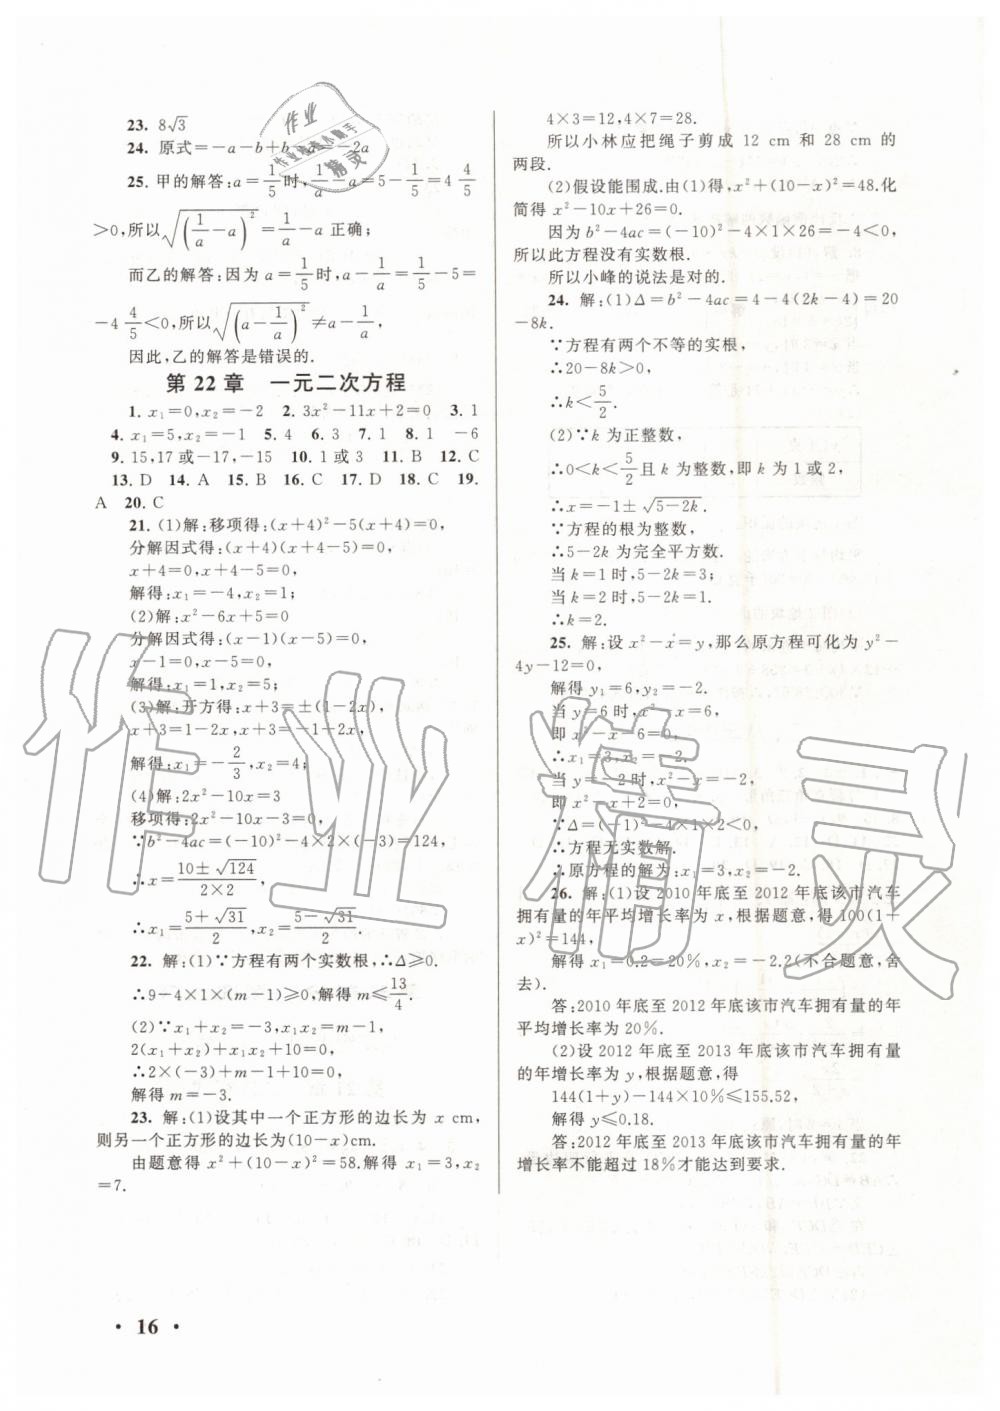 23. 8√3
24. 原式=-a-b+b-a=-2a
25. 甲的解答:a=1/5时,1/a-a=5-1/5=4 4/5
>0,所以√((1/a-a)²)=1/a-a 正确;
而乙的解答:因为 a=1/5时,a-1/a=1/5-5=
-4 4/5<0,所以√((a-1/a)²)≠a-1/a,
因此,乙的解答是错误的.
第 22 章 一元二次方程
1. x₁=0,x₂=-2 2. 3x²-11x+2=0 3. 1
4. x₁=5,x₂=-1 5. 4 6. 3 7. 1 8. 1 -6
9. 15,17 或-17,-15 10. 1 或 3 11. B 12. C
13. D 14. A 15. B 16. C 17. D 18. C 19.
A 20. C
21. (1)解:移项得:(x+4)²-5(x+4)=0,
分解因式得:(x+4)(x+4-5)=0,
x+4=0,x+4-5=0,
解得:x₁=-4,x₂=1;
(2)解:x²-6x+5=0
分解因式得:(x-1)(x-5)=0,
x-1=0,x-5=0,
解得:x₁=1,x₂=5;
(3)解:开方得:x+3=±(1-2x),
x+3=1-2x,x+3=-1+2x,
解得:x₁=-2/3,x₂=4;
(4)解:2x²-10x=3
移项得:2x²-10x-3=0,
∵b²-4ac=(-10)²-4×2×(-3)=124,
∴x=(10±√124)/(2×2),
∴x₁=(5+√31)/2,x₂=(5-√31)/2.
22. 解:(1)∵方程有两个实数根,∴Δ≥0.
∴9-4×1×(m-1)≥0,解得 m≤13/4.
(2)∵x₁+x₂=-3,x₁x₂=m-1,
2(x₁+x₂)+x₁x₂+10=0,
∴2×(-3)+m-1+10=0,
解得 m=-3.
23. 解:(1)设其中一个正方形的边长为 x cm,
则另一个正方形的边长为(10-x)cm.
由题意得 x²+(10-x)²=58.解得 x₁=3,x₂
=7.
4×3=12,4×7=28.
所以小林应把绳子剪成 12 cm 和 28 cm 的
两段.
(2)假设能围成.由(1)得,x²+(10-x)²=48.化
简得 x²-10x+26=0.
因为 b²-4ac=(-10)²-4×1×26=-4<0,
所以此方程没有实数根.
所以小峰的说法是对的.
24. 解:(1)Δ=b²-4ac=4-4(2k-4)=20
-8k.
∵方程有两个不等的实根,
∴20-8k>0,
∴k<5/2.
(2)∵k 为正整数,
∴0<k<5/2且 k 为整数,即 k 为 1 或 2,
∴x=-1±√(5-2k).
∵方程的根为整数,
∴5-2k 为完全平方数.
当 k=1 时,5-2k=3;
当 k=2 时,5-2k=1.
∴k=2.
25. 解:设 x²-x=y,那么原方程可化为 y²-
4y-12=0,
解得 y₁=6,y₂=-2.
当 y=6 时,x²-x=6,
即 x²-x-6=0,
∴x₁=3,x₂=-2.
当 y=-2 时,x²-x=-2,
即 x²-x+2=0,
∵Δ=(-1)²-4×1×2<0,
∴方程无实数解,
∴原方程的解为:x₁=3,x₂=-2.
26. 解:(1)设 2010 年底至 2012 年底该市汽车
拥有量的年平均增长率为 x,根据题意,得 100(1+
x)²=144,
解得 x₁=0.2=20%,x₂=-2.2(不合题意,舍
去).
答:2010 年底至 2012 年底该市汽车拥有量的年
平均增长率为 20%.
(2)设 2012 年底至 2013 年底该市汽车拥有量
的年增长率为 y,根据题意,得
144(1+y)-144×10%≤155.52,
解得 y≤0.18.
答:2012 年底至 2013 年底该市汽车拥有量的年
增长率不能超过 18%才能达到要求.
· 16 ·
作业精灵